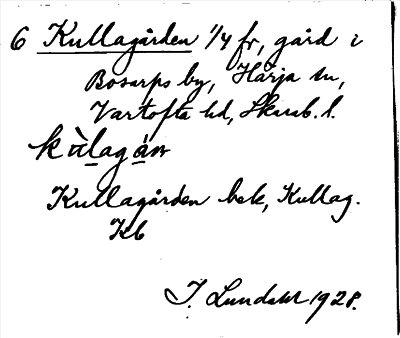 6 Kullagården 1/4 fr, gård i
Bosarps by, Härja sn,
Vartofta hd, Skarab. l.
kùlagán
Kullagården bek, Kullag.
Kb
J. Lundahl 1928.